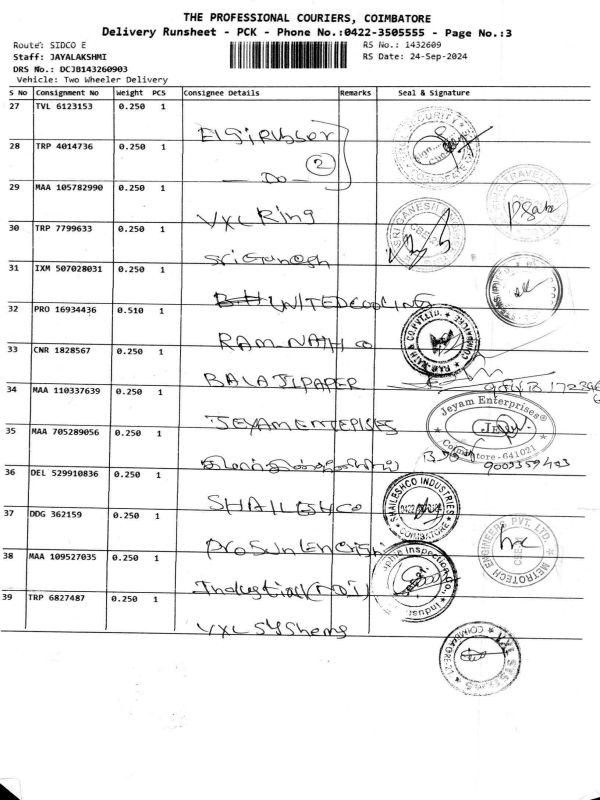 THE PROFESSIONAL COURIERS, COIMBATORE
Delivery Runsheet - PCK - Phone No.:0422-3505555 - Page No.:3
Route: SIDCO E
RS No.: 1432609
Staff: JAYALAKSHMI
RS Date: 24-Sep-2024
DRS No.: DCJB143260903
Vehicle: Two Wheeler Delivery
S No Consignment No Weight PCS Consignee Details Remarks Seal & Signature
27 TVL 6123153 0.250 1
Elgi rubber
28 TRP 4014736 0.250 1
Do
2
29 MAA 105782990 0.250 1
VXL Ring
30 TRP 7799633 0.250 1
Sri Ganesh
31 IXM 507028031 0.250 1
UNITED COOLING
32 PRO 16934436 0.510 1
RAM-NATH CO
33 CNR 1828567 0.250 1
BALAJI PAPER
34 MAA 110337639 0.250 1
JEYAM ENTEPRISES
Jeyam Enterprises®
Coimbatore-641021
35 MAA 705289056 0.250 1
36 DEL 529910836 0.250 1
SHAILESHCO
SHAILESHCO INDUSTRIES
COIMBATORE
37 DDG 362159 0.250 1
METROTECH ENGINEERS PVT. LTD.
38 MAA 109527035 0.250 1
Industrial (NDI)
39 TRP 6827487 0.250 1
VXL SYStems